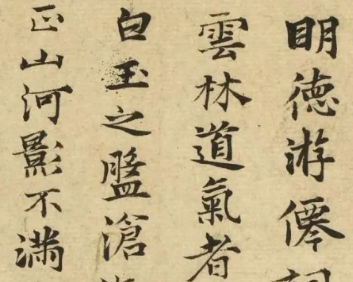 明德游僊詞
雲林道氣者
白玉之盤滄
正山河影不滿